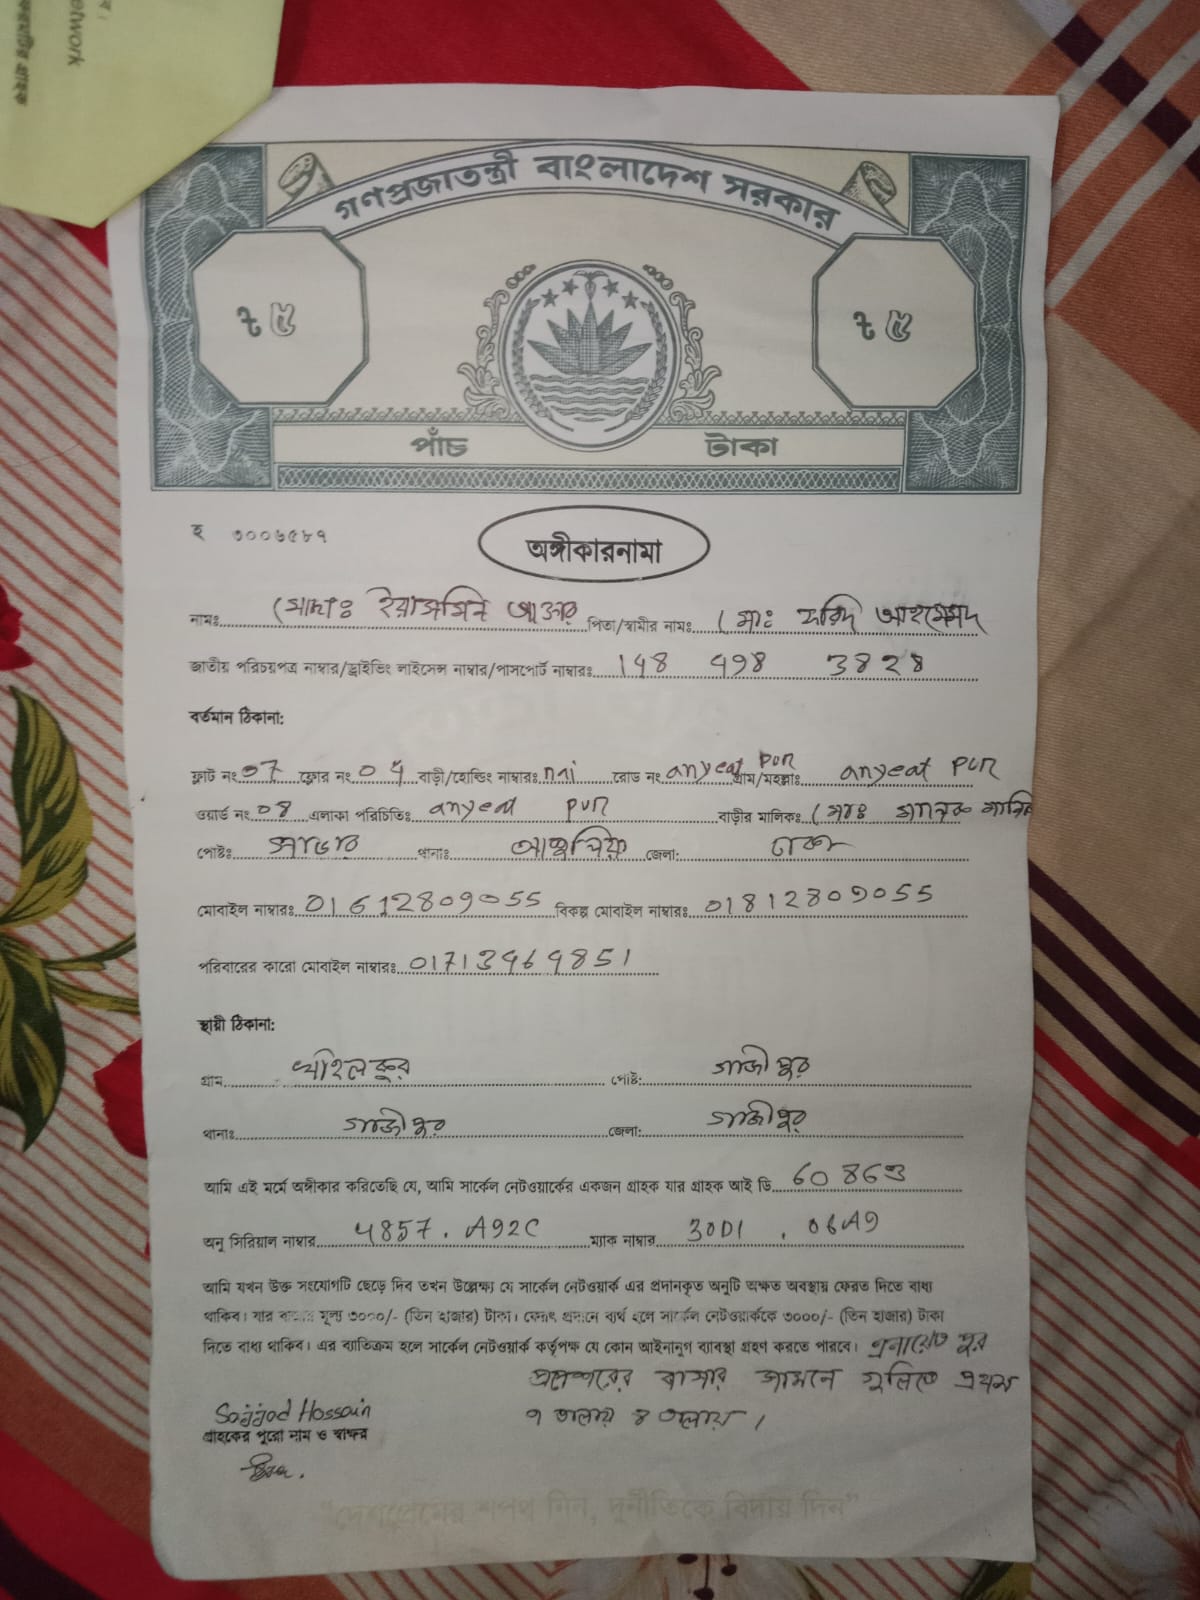 নেটওয়ার্কের গ্রাহক
etwork
গণপ্রজাতন্ত্রী বাংলাদেশ সরকার
৳ ৫ ৳ ৫
পাঁচ টাকা
হ ৩০০৬৫৮৭
অঙ্গীকারনামা
নামঃ মোছাঃ ইয়াসমিন আক্তার পিতা/স্বামীর নামঃ মোঃ ফরিদ আহমেদ
জাতীয় পরিচয়পত্র নাম্বার/ড্রাইভিং লাইসেন্স নাম্বার/পাসপোর্ট নাম্বারঃ 148 498 3828
বর্তমান ঠিকানা:
ফ্লাট নং ০7 ফ্লোর নং ০4 বাড়ী/হোল্ডিং নাম্বারঃ nni রোড নং anyeat pur গ্রাম/মহল্লাঃ anyeat pur
ওয়ার্ড নং ০8 এলাকা পরিচিতিঃ anyeat pur বাড়ীর মালিকঃ মোঃ
পোষ্টঃ সাভার থানাঃ আশুলিয়া জেলা: ঢাকা
মোবাইল নাম্বারঃ 01612809055 বিকল্প মোবাইল নাম্বারঃ 01812809055
পরিবারের কারো মোবাইল নাম্বারঃ 01713464851
স্থায়ী ঠিকানা:
গ্রাম পোষ্ট: গাজীপুর
থানাঃ গাজীপুর জেলা: গাজীপুর
আমি এই মর্মে অঙ্গীকার করিতেছি যে, আমি সার্কেল নেটওয়ার্কের একজন গ্রাহক যার গ্রাহক আই ডি 60863
অনু সিরিয়াল নাম্বার 4857. A92C ম্যাক নাম্বার 30D1 . 06A9
আমি যখন উক্ত সংযোগটি ছেড়ে দিব তখন উল্লেক্ষ্য যে সার্কেল নেটওয়ার্ক এর প্রদানকৃত অনুটি অক্ষত অবস্থায় ফেরত দিতে বাধ্য
থাকিব। যার বাজার মূল্য ৩০০০/- (তিন হাজার) টাকা। ফেরৎ প্রদানে ব্যর্থ হলে সার্কেল নেটওয়ার্ককে ৩০০০/- (তিন হাজার) টাকা
দিতে বাধ্য থাকিব। এর ব্যাতিক্রম হলে সার্কেল নেটওয়ার্ক কর্তৃপক্ষ যে কোন আইনানুগ ব্যাবস্থা গ্রহণ করতে পারবে। এনায়েত পুর
বাসার সামনে গলিতে প্রথম
৭ তালায় ৪ তলায়।
Sajjad Hossain
গ্রাহকের পুরো নাম ও স্বাক্ষর
"দেশপ্রেমের শপথ নিন, দুর্নীতিকে বিদায় দিন"